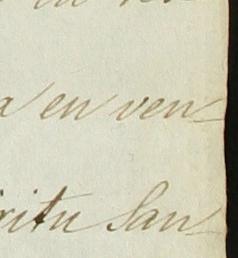 a en ven-
ritu San-